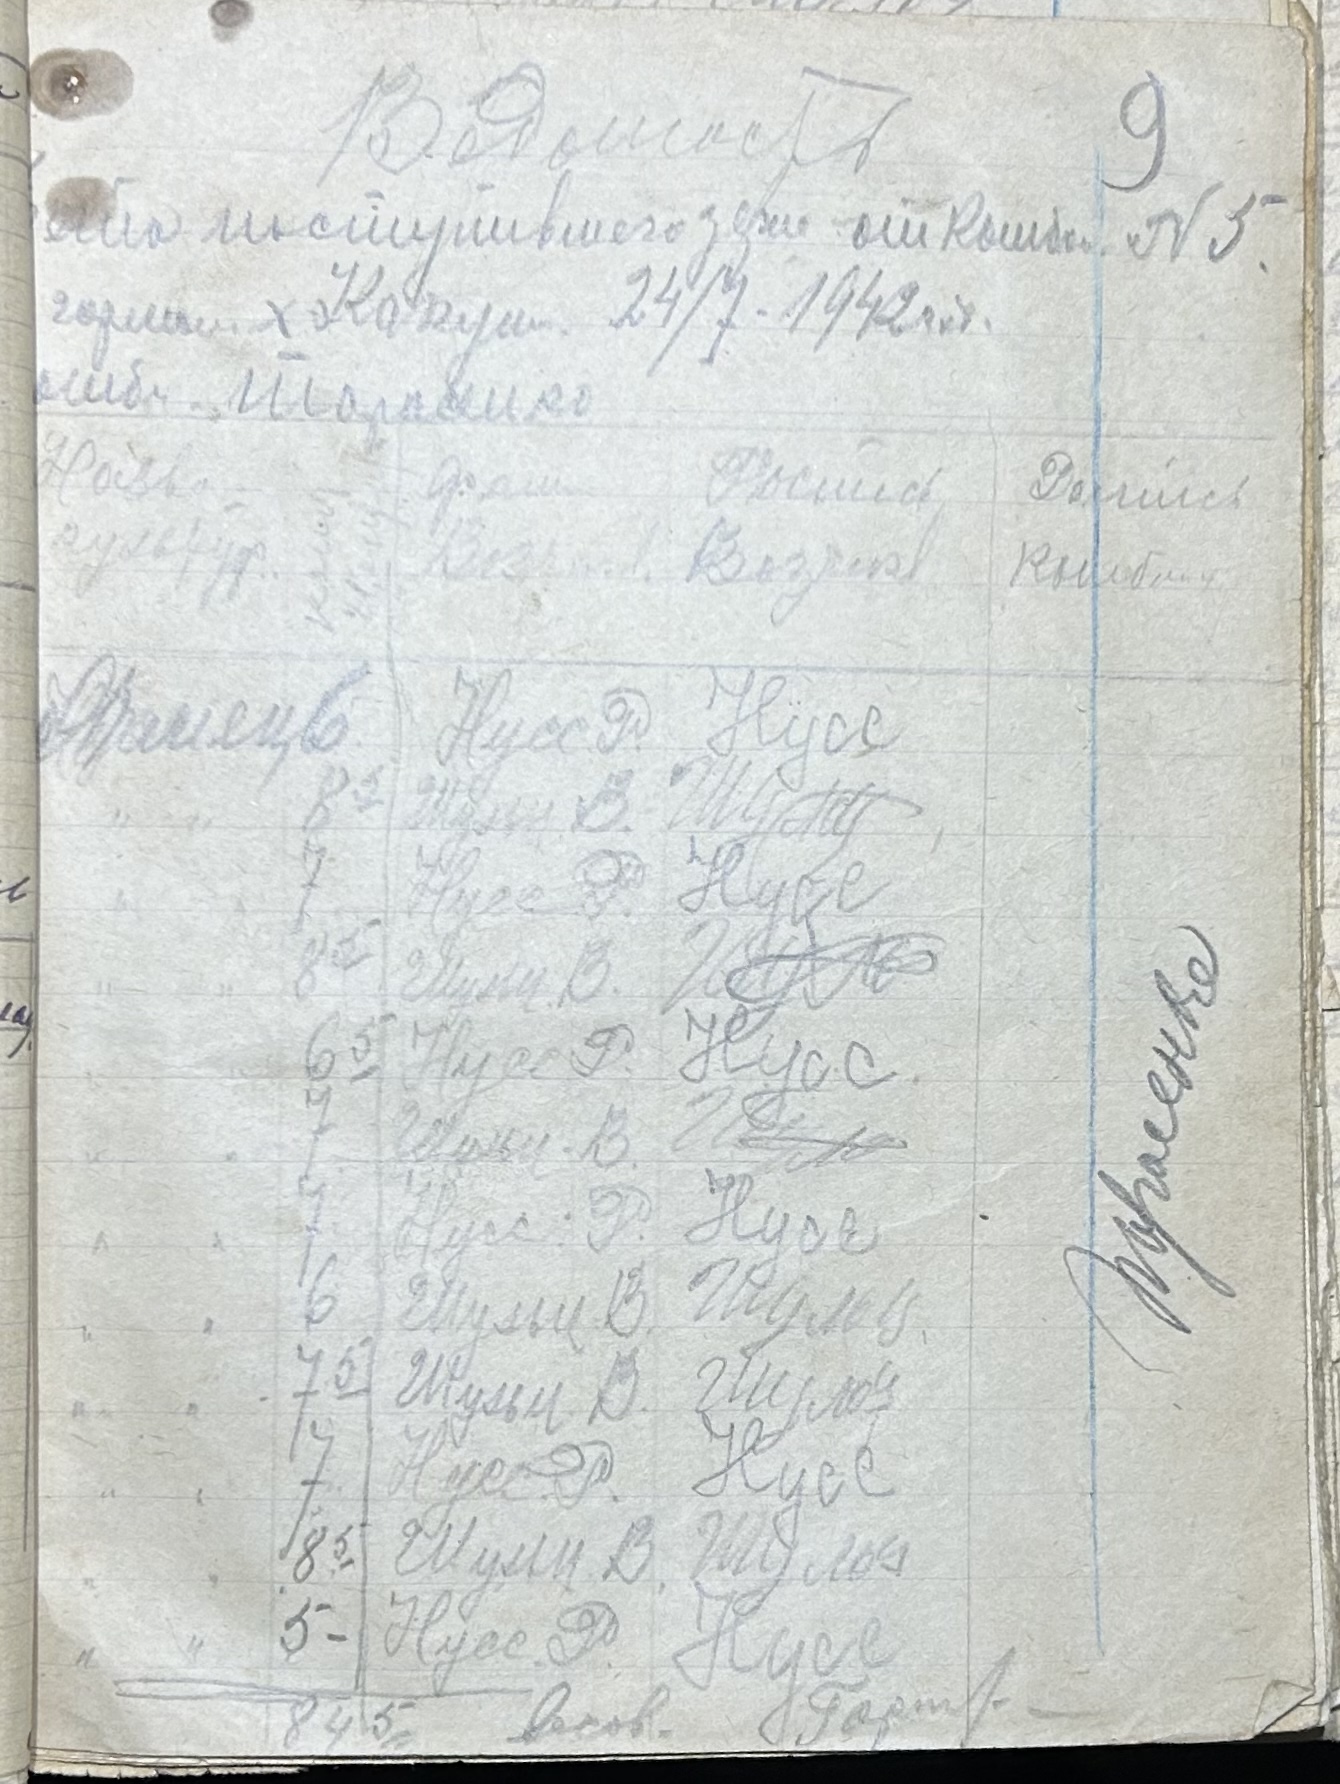 Ведомость
9
поступившего зерна от комбай. N 5.
24/7 - 1942 г.
Тараненко
Назва
культур.
фам.
Возчиков.
Роспись
Возчиков
Роспись
Комбай
Ячмень 6 Нусс Р. Нусс
" " 8 5 Шульц В. Шульц
" " 7 Нусс Р. Нусс
" " 8 5 Шульц В.
" " 6 5 Нусс Р. Нусс.
" " 7 Шульц В.
" " 7. Нусс Р. Нусс
" " 6 Шульц В. Шульц
" " 7 5 Шульц В. Шульц
" " 7 Нусс. Р. Нусс
" " 8 5 Шульц В. Шульц
" " 5 - Нусс. Р. Нусс
84 5 весов.
Тараненко